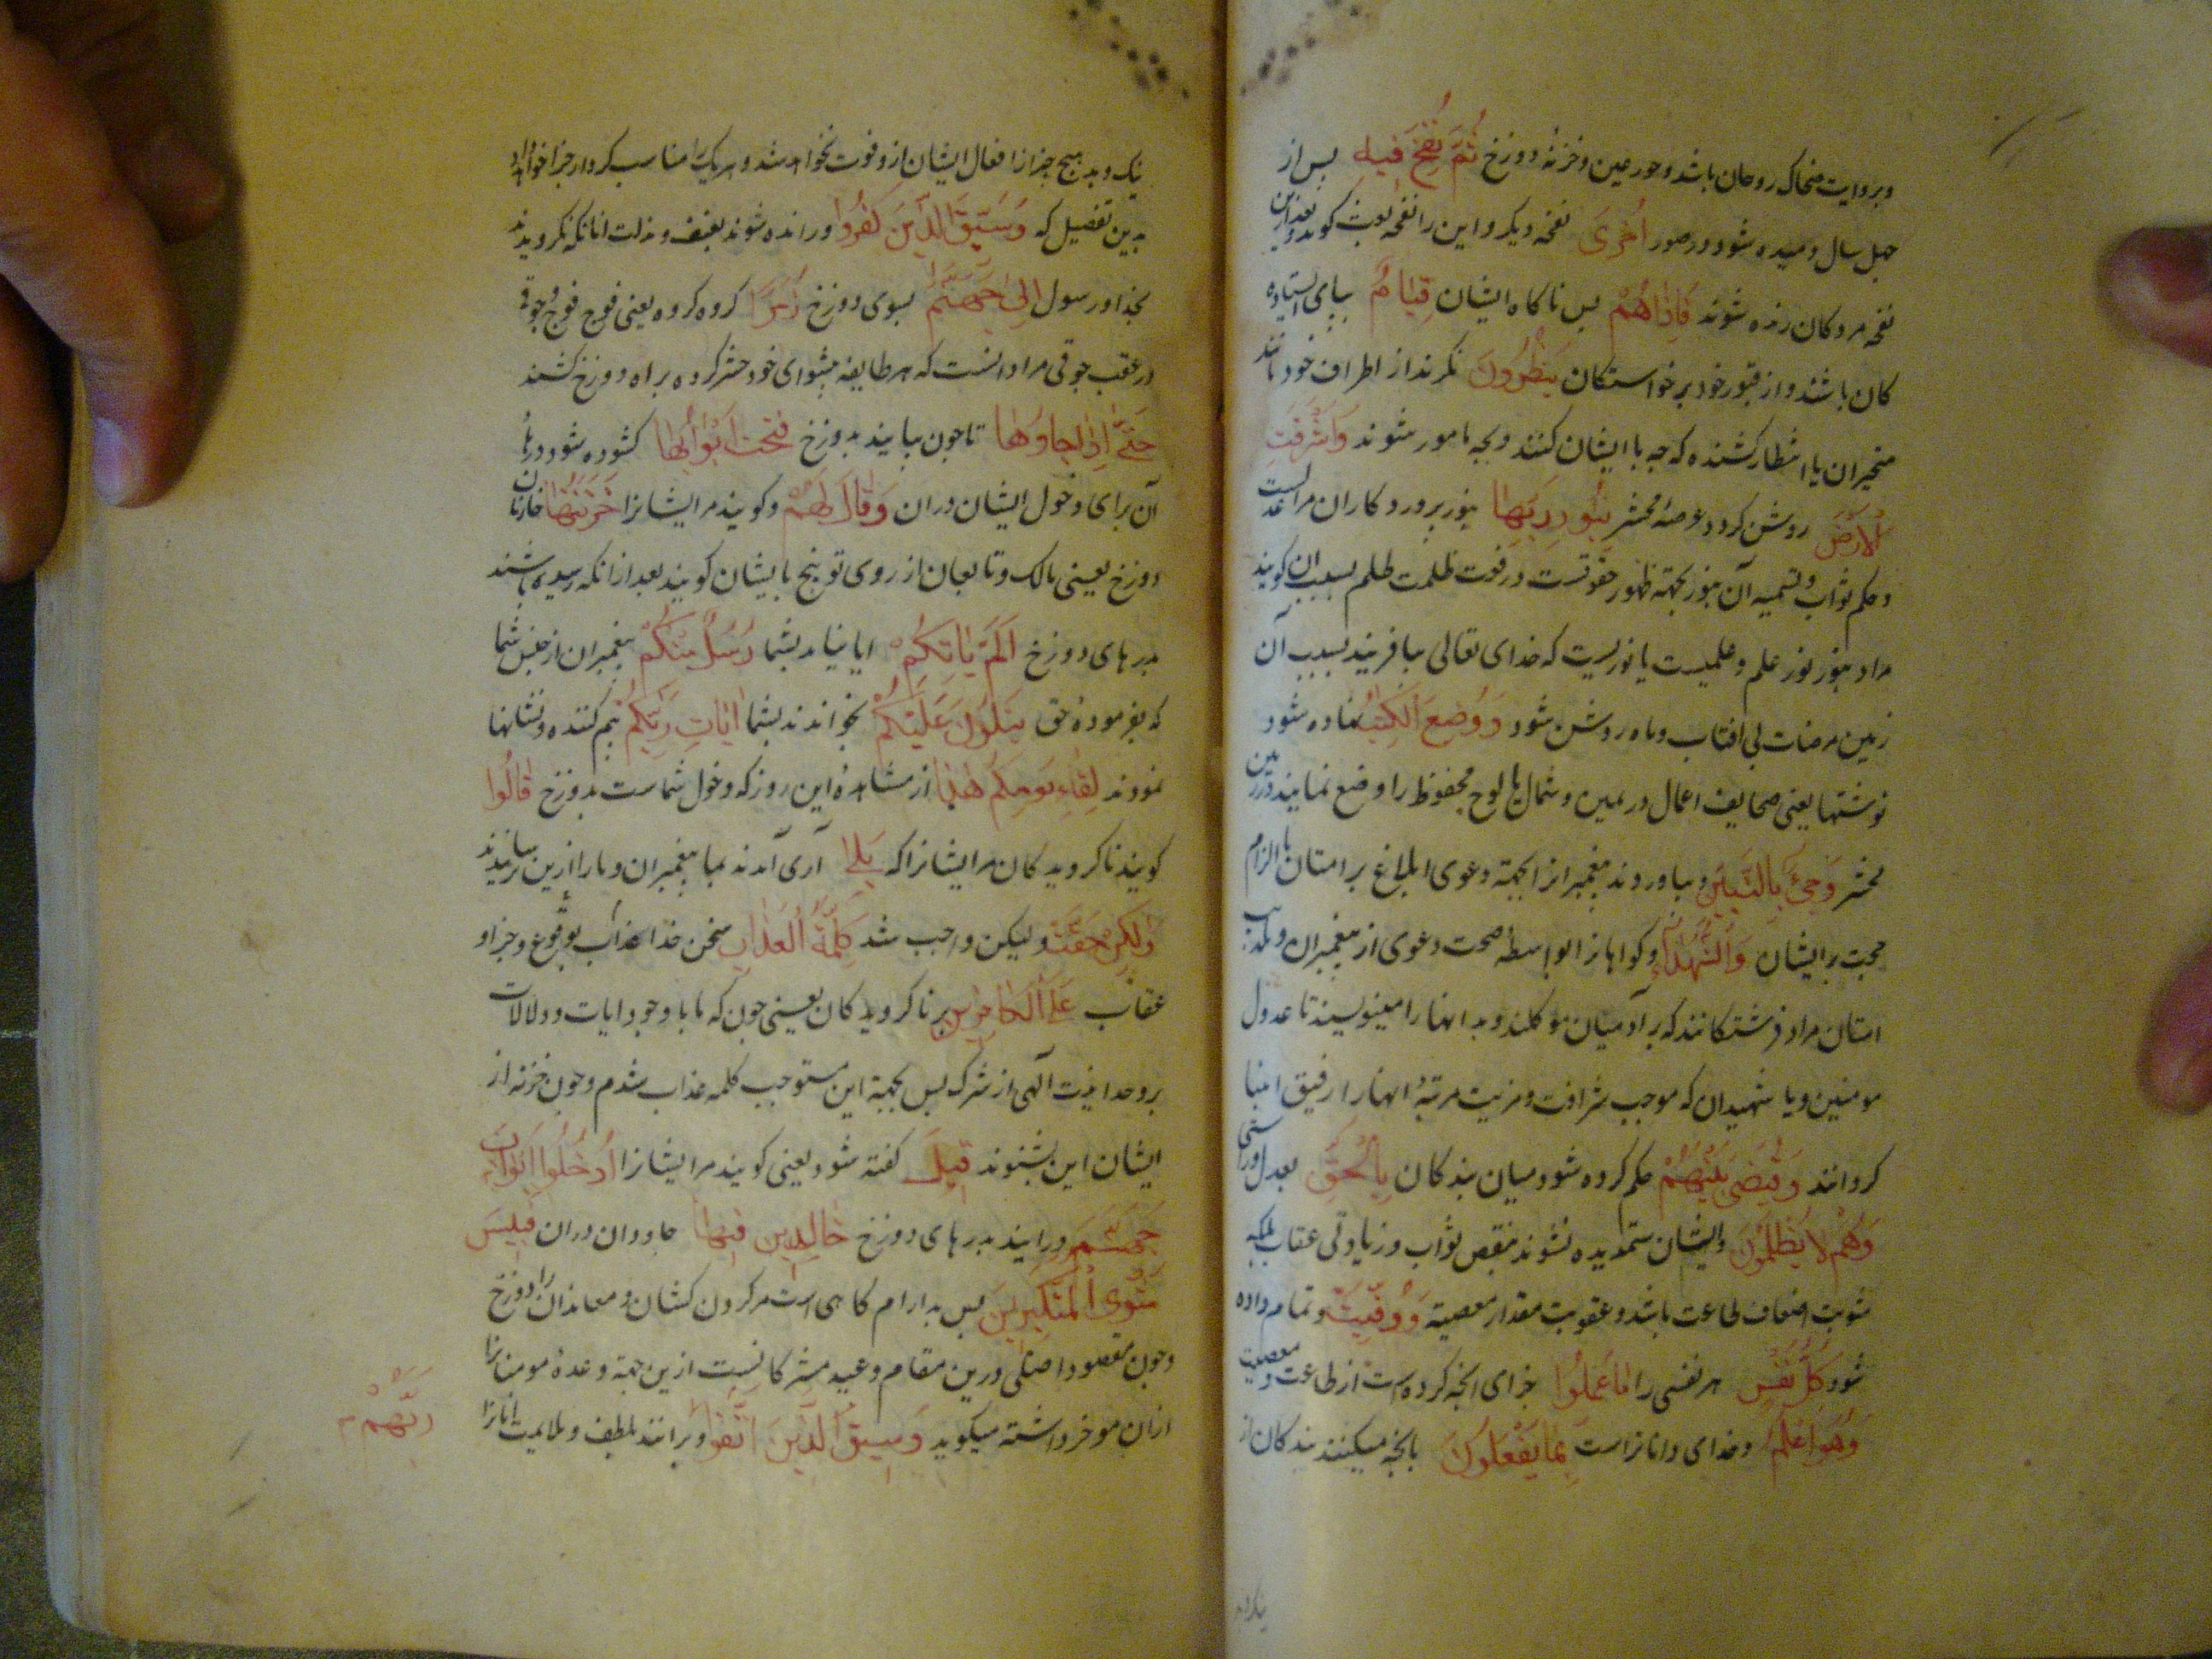 وبروایت ضحاک روحان باشد وحور عین وخزنهٔ دوزخ ثُمَّ نُفِخَ فیهِ پس از
چهل سال دمیده شود در صور اُخْرَی نفخه دیکر و این را نفخه بعث کویند وبعد ازین
نفخه مردکان زنده شوند فَاِذَا هُمْ پس ناکاه ایشان قِیَامٌ بپای ایستاده
کان باشند و از قبور خود برخواستکان یَنْظُرُونَ نکرند از اطراف خود مانند
متحیران یا انتظار کشنده که چه با ایشان کنند و بچه مامور شوند وَاَشْرَقَتِ
الْاَرْضُ روشن کردد عرصهٔ محشر بِنُورِ رَبِّهَا بنور پروردکاران مراد عدلست
وحکم ثواب و تسمیه آن بنور بجهة ظهور حقوقست در وقت ظلمت ظلم بسبب ان کویند
مراد بنور نور علم و حلمیست یا نوریست که خدای تعالی بیافریند بسبب آن
زمین عرصات بی افتاب و ماه روشن شود وَوُضِعَ الْکِتٰبُ نهاده شود
نوشتها یعنی صحایف اعمال در یمین و شمال یا لوح محفوظ را وضع نمایند در زمین
محشر وَجِیءَ بِالنَّبِیّٖنَ و بیاورند پیغمبرانرا بجهة دعوی ابلاغ بر امتان با الزام
حجت بر ایشان وَالشُّهَدَاءِ و کواهانرا بواسطهٔ صحت دعوی از پیغمبران و تکذیب
امتان مراد فرشتکانند که بر آدمیان موکلند و بد انها را مینویسند تا عدول
مومنین و یا شهیدان که موجب شرافت و مزیت مرتبهٔ انها را رفیق انبیا
کردانند وَقُضِیَ بَیْنَهُمْ حکم کرده شود میان بندکان بِالْحَقِّ بعدل و راستی
وَهُمْ لَا یُظْلَمُونَ و ایشان ستمدیده نشوند بنقص ثواب و زیادتی عقاب بلکه
مثوبت اضعاف طاعت باشد و عقوبت مقدار معصیة وَوُفِّیَتْ و تمام داده
شود کُلُّ نَفْسٍ هر نفسی را مَا عَمِلُوا جزای انچه کرده است از طاعت و معصیت
وَهُوَ اَعْلَمُ و خدای داناتراست بِمَا یَفْعَلُونَ بانچه میکنند بندکان از
نیک و بد هیچ چیز از افعال ایشان از و فوت نخواهد شد و هر یک را مناسب کردار جزا خواهد داد
بدین تفصیل که وَسِیقَ الَّذِینَ کَفَرُوا و رانده شوند بعنف و مذلت انانکه نکرویدند
بخدا و رسول اِلٰی جَهَنَّمَ بسوی دوزخ زُمَرًا کروه کروه یعنی فوج فوج و جوقی
در عقب جوقی مراد انست که هر طایفه بپیشوای خود حشر کرده براه دوزخ کشند
حَتّٰی اِذَا جَاءُوهَا تا چون بیایند بدوزخ فُتِحَتْ اَبْوَابُهَا کشوده شود درهای
آن برای دخول ایشان دران وَقَالَ لَهُمْ و کویند مر ایشانرا خَزَنَتُهَا خازنان
دوزخ یعنی مالک و تابعان از روی توبیخ با یشان کویند بعد از انکه رسیده باشند
بدرهای دوزخ اَلَمْ یَاْتِکُمْ ایا نیامد بشما رُسُلٌ مِنْکُمْ پیغمبران از جنس شما
که بفرمودهٔ حق یَتْلُونَ عَلَیْکُمْ بخواندند بشما اٰیَاتِ رَبِّکُمْ بیم کننده و نشانها
نمودند لِقَاءَ یَوْمِکُمْ هٰذَا از مشاهدهٔ این روز که دخول شماست بدوزخ قَالُوا
کویند ناکرویدکان مر ایشانرا که بَلٰی آری آمدند بما پیغمبران و ما را ازین ترسانیدند
وَلٰکِنْ حَقَّتْ و لیکن واجب شد کَلِمَةُ الْعَذَابِ سخن خدا عذاب بوقوع و جزا و
عقاب عَلَی الْکَافِرِینَ بر ناکرویدکان یعنی چون که ما با وجود ایات و دلالات
بر وحدانیت آلهی از شرک پس بجهة این مستوجب کلمه عذاب شدم و چون خزنه از
ایشان این بشنوند قِیلَ کفته شود یعنی کویند مر ایشانرا ادْخُلُوا اَبْوَابَ
جَهَنَّمَ درایند بدرهای دوزخ خَالِدِینَ فِیهَا جاودان دران فَبِئْسَ
مَثْوَی الْمُتَکَبِّرِینَ پس بد ارام کاهی است مر کردن کشان و معاندان را دوزخ
و چون مقصود اصلی درین مقام وعید مشرکانست ازین جهة وعدهٔ مومنانرا
ازان موخر داشته میکوید وَسِیقَ الَّذِینَ اتَّقَوْا و برانند بلطف و ملایمت انانرا
رَبَّهُمْ